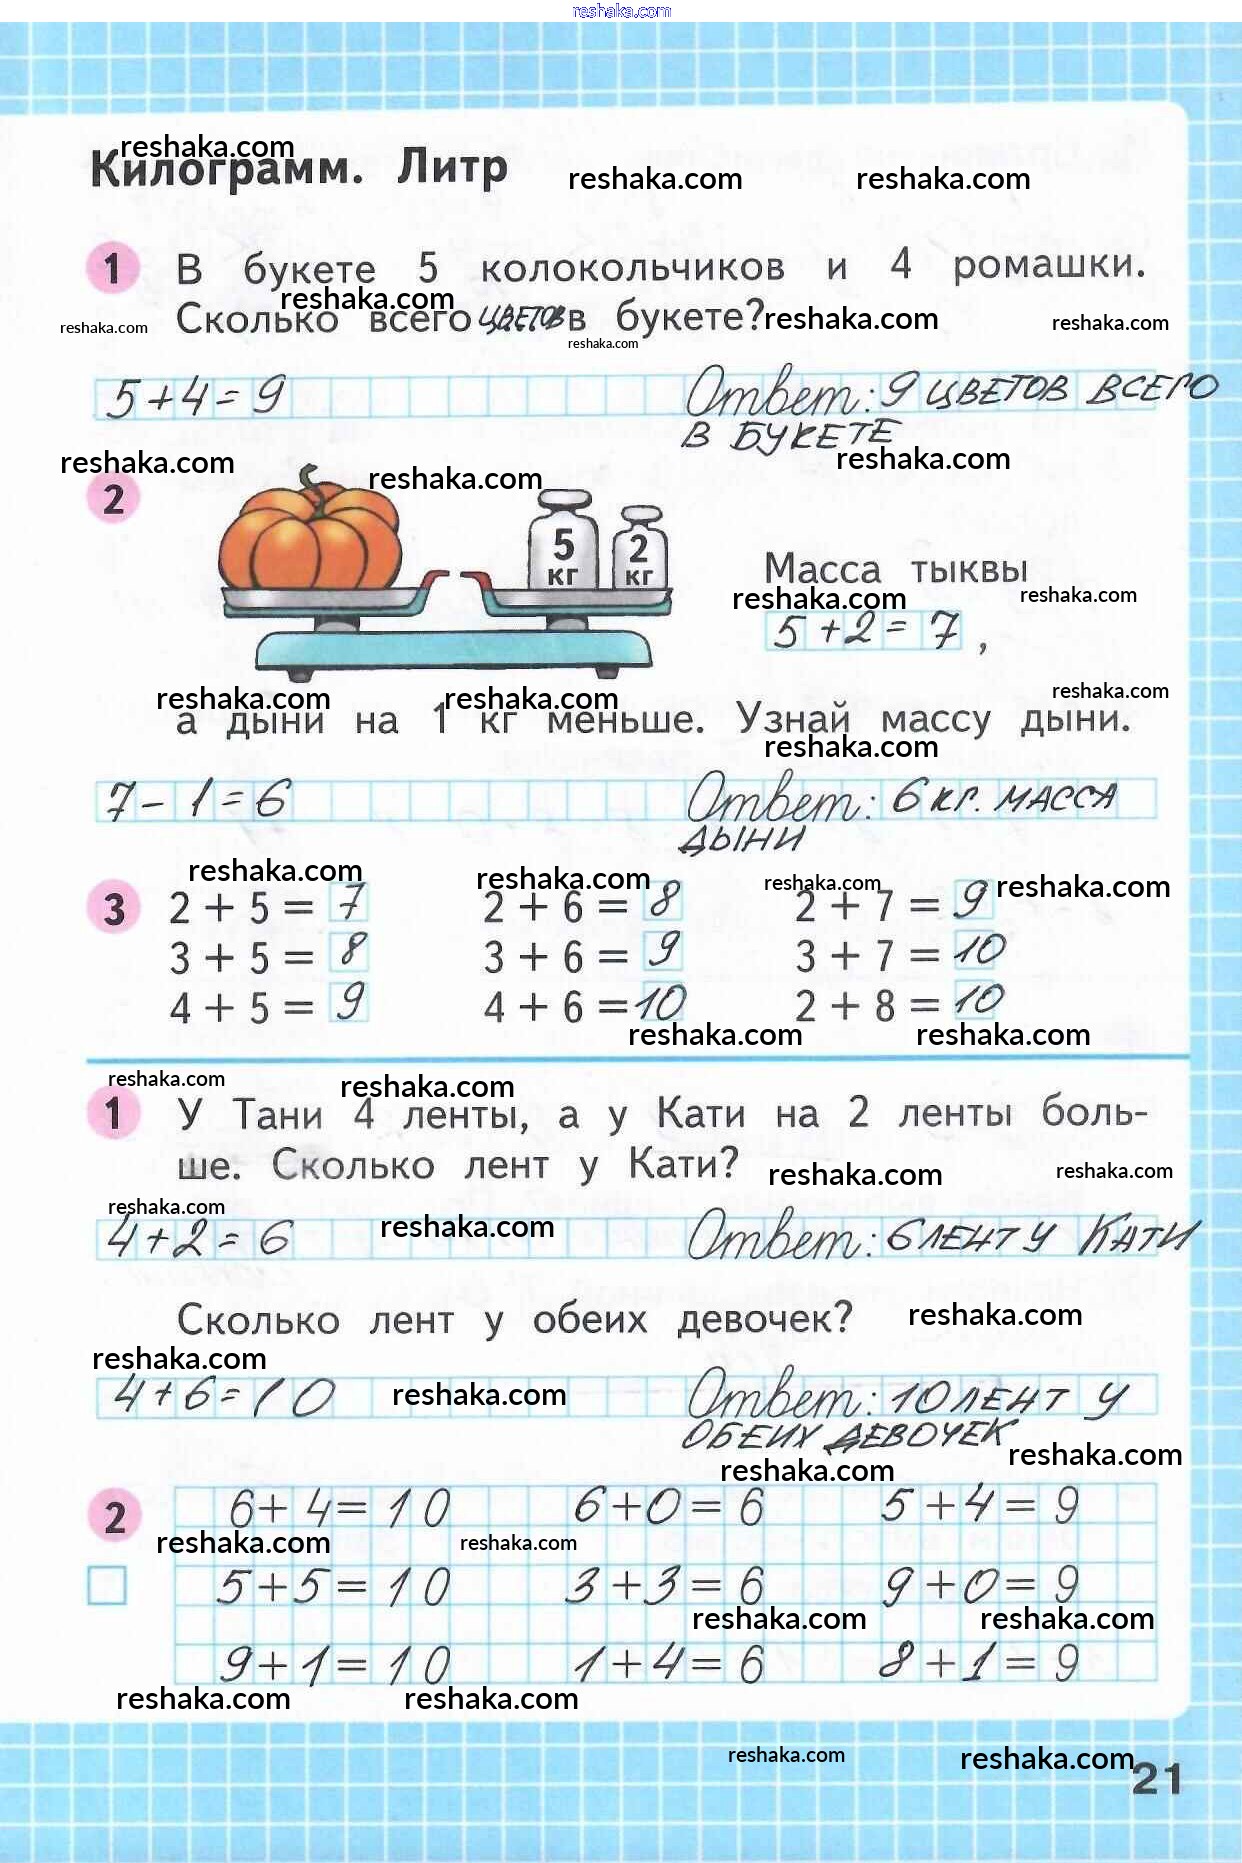 reshaka.com
reshaka.com
Килограмм. Литр
reshaka.com reshaka.com
1 В букете 5 колокольчиков и 4 ромашки.
reshaka.com
Сколько всего ЦВЕТОВ в букете? reshaka.com reshaka.com
reshaka.com
reshaka.com
5+4=9 Ответ: 9 ЦВЕТОВ ВСЕГО
В БУКЕТЕ
reshaka.com reshaka.com reshaka.com
2
5 кг 2 кг
Масса тыквы
reshaka.com reshaka.com
5+2=7,
reshaka.com reshaka.com reshaka.com
а дыни на 1 кг меньше. Узнай массу дыни.
reshaka.com
7-1=6 Ответ: 6 КГ. МАССА
ДЫНИ
reshaka.com reshaka.com reshaka.com reshaka.com
3 2 + 5 = 7 2 + 6 = 8 2 + 7 = 9
3 + 5 = 8 3 + 6 = 9 3 + 7 = 10
4 + 5 = 9 4 + 6 = 10 2 + 8 = 10
reshaka.com reshaka.com
reshaka.com reshaka.com
1 У Тани 4 ленты, а у Кати на 2 ленты боль-
ше. Сколько лент у Кати? reshaka.com reshaka.com
reshaka.com reshaka.com
4+2=6 Ответ: 6 ЛЕНТ У КАТИ
Сколько лент у обеих девочек? reshaka.com
reshaka.com
4+6=10 reshaka.com Ответ: 10 ЛЕНТ У
ОБЕИХ ДЕВОЧЕК
reshaka.com reshaka.com
2 6+4=10 6+0=6 5+4=9
reshaka.com reshaka.com
5+5=10 3+3=6 9+0=9
reshaka.com reshaka.com
9+1=10 1+4=6 8+1=9
reshaka.com reshaka.com
reshaka.com reshaka.com
21